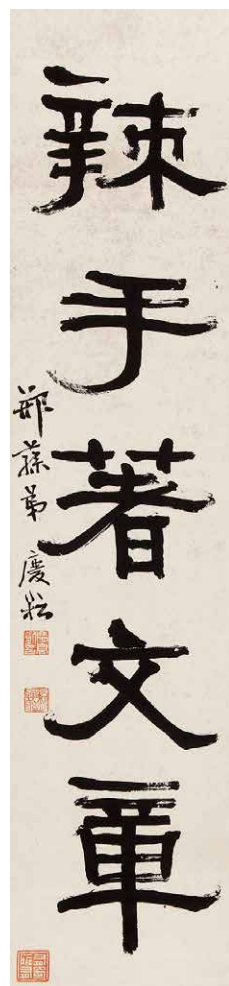 辣手著文章
弟慶崧